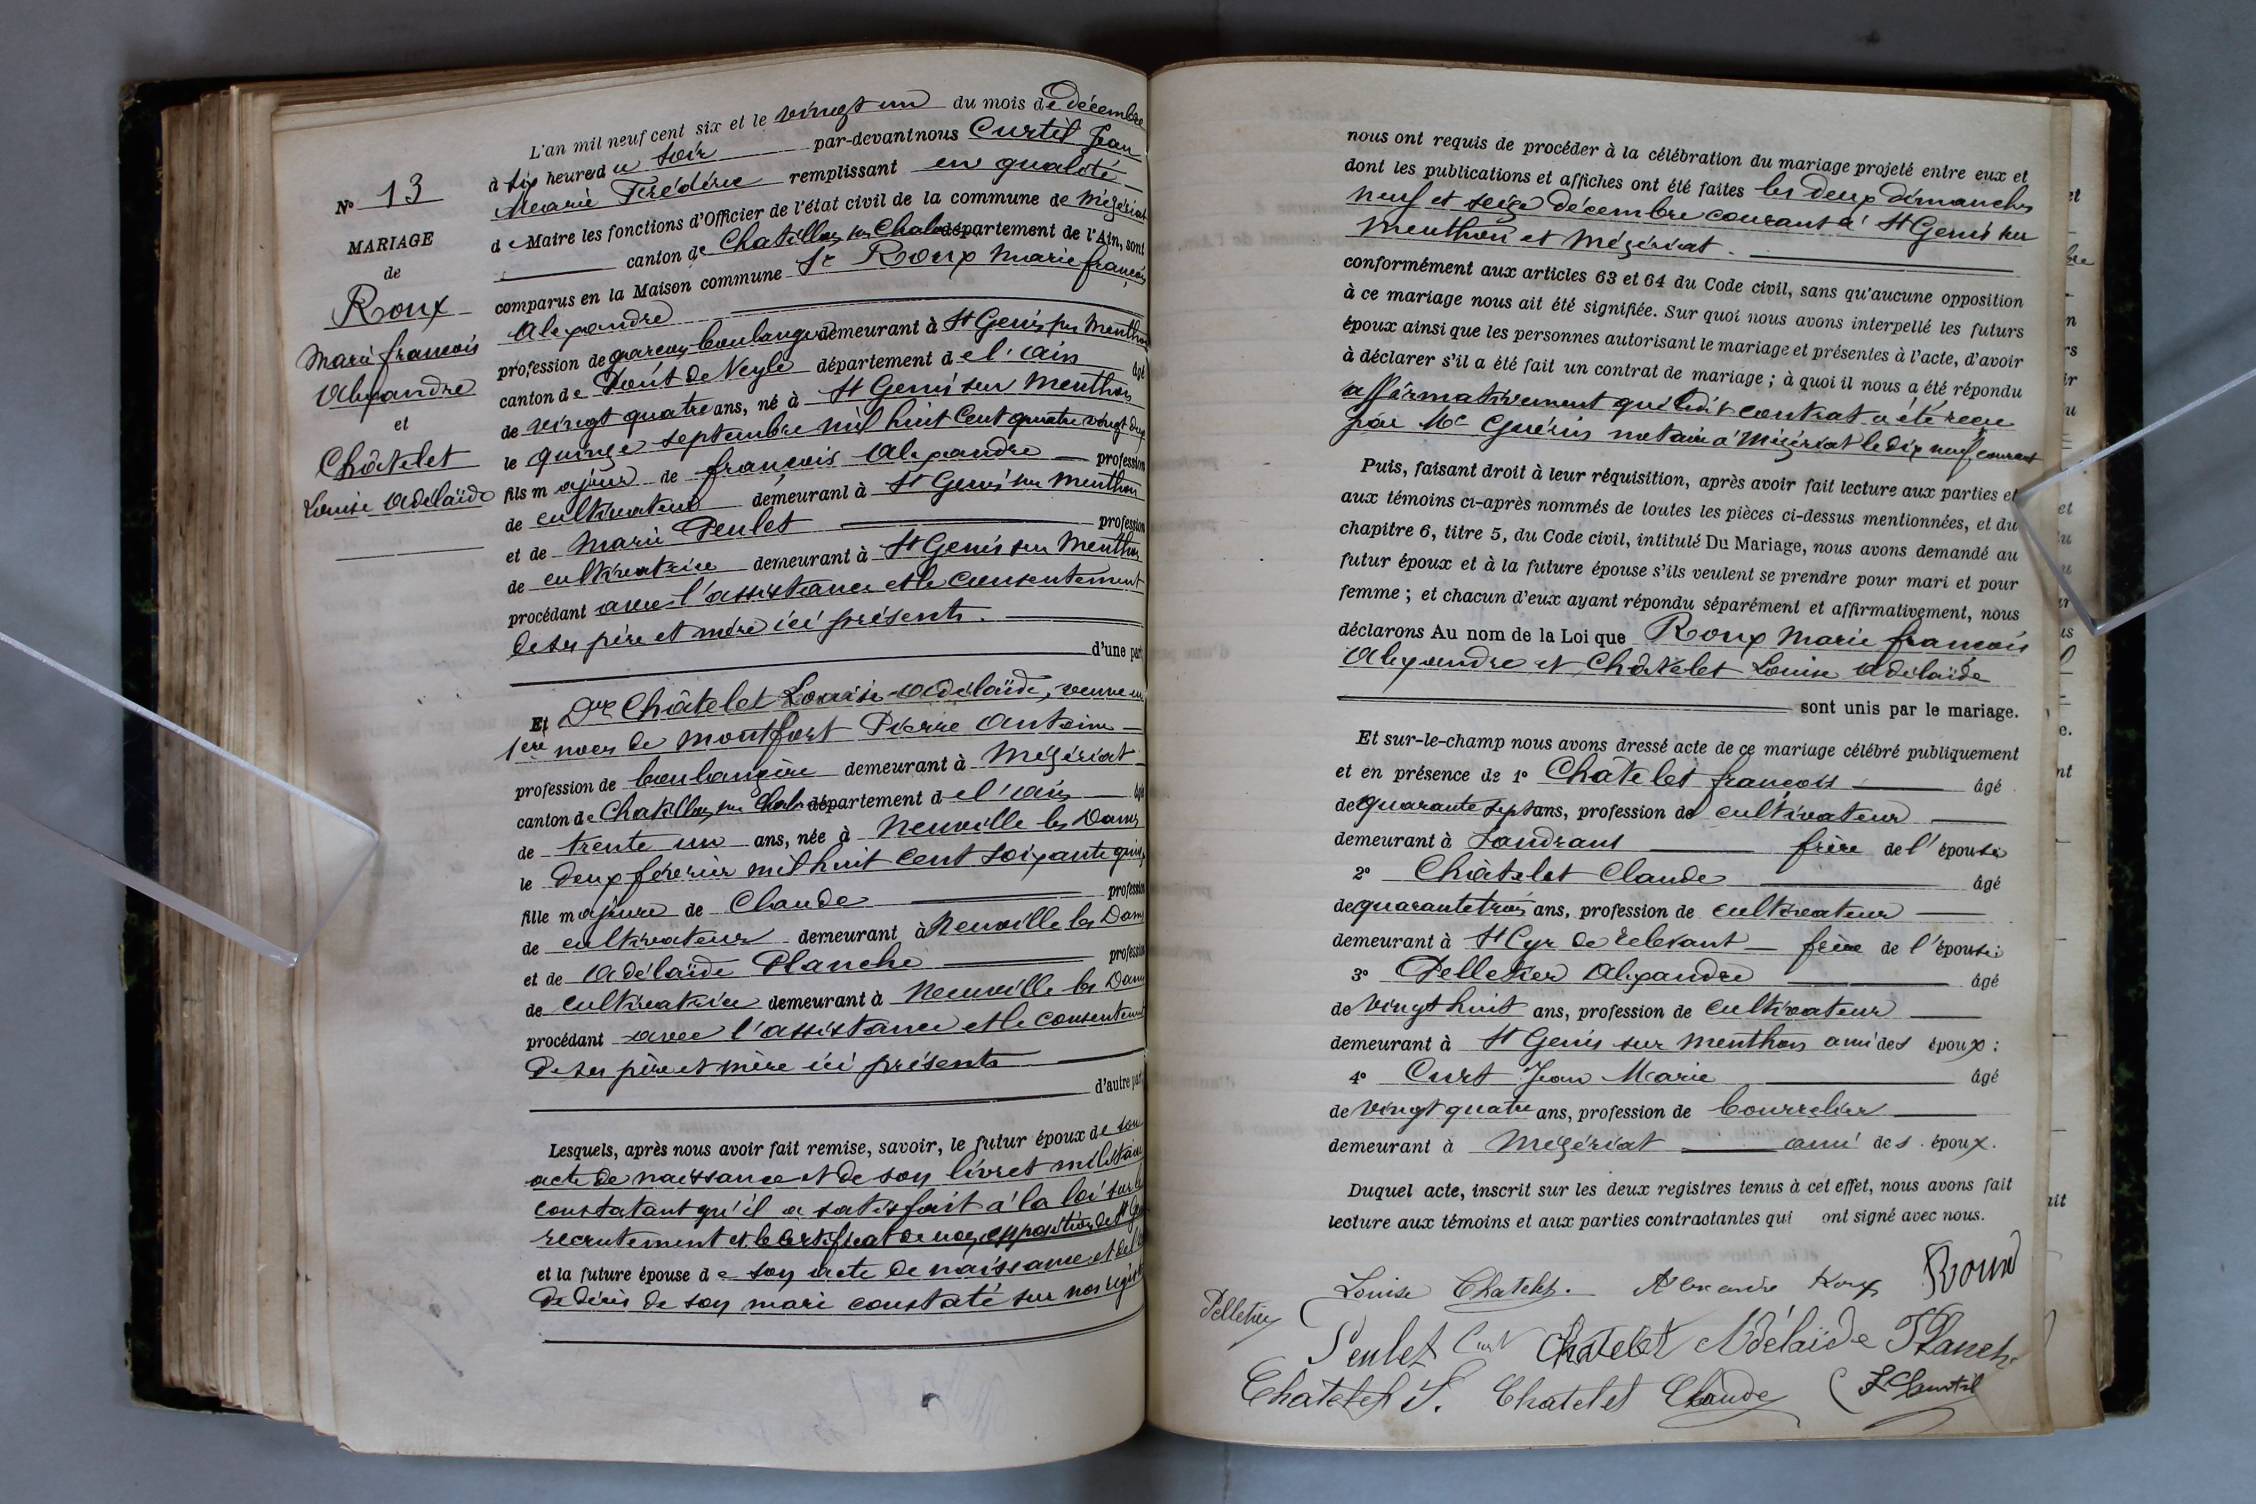 N° 13
MARIAGE
de
Roux
Marie françois
Alexandre
et
Châtelet
Louise Adélaïde
L'an mil neuf cent six et le vingt un du mois de décembre
à six heures du soir par-devant nous Curtil Jean
Marie Frédéric remplissant en qualité
de Maire les fonctions d'Officier de l'état civil de la commune de Mézériat
canton de Chatillon sur Chalne département de l'Ain, sont
comparus en la Maison commune Sr Roux Marie françois
Alexandre
profession de garçon boulanger demeurant à St Genis sur Menthon
canton de Pont de Veyle département de l'ain âgé
de vingt quatre ans, né à St Genis sur Menthon
le quinze septembre mil huit cent quatre vingt deux
fils majeur de françois Alexandre profession
de cultivateur demeurant à St Genis sur Menthon
et de Marie Peulet profession
de cultivatrice demeurant à St Genis sur Menthon
procédant avec l'assistance et le consentement
de ses père et mère ici présents.
d'une part
Et Dve Châtelet Louise Adélaïde, veuve en
1ere noces de Montfort Pierre Antoine
profession de boulangère demeurant à Mézériat
canton de Chatillon sur Chalne département de l'ain âgé
de trente un ans, née à Neuville les Dames
le deux février mil huit cent soixante quinze
fille majeure de Claude profession
de cultivateur demeurant à Neuville les Dames
et de Adélaïde Planche profession
de cultivatrice demeurant à Neuville les Dames
procédant avec l'assistance et le consentement
de ses père et mère ici présents
d'autre part
Lesquels, après nous avoir fait remise, savoir, le futur époux de son
acte de naissance et de son livret militaire
constatant qu'il a satisfait à la loi sur le
recrutement et le certificat de non opposition de St Genis
et la future épouse de son acte de naissance et de l'acte
de décès de son mari constaté sur nos registres
nous ont requis de procéder à la célébration du mariage projeté entre eux et
dont les publications et affiches ont été faites les deux dimanches
neuf et seize décembre courant à St Genis sur
Menthon et Mézériat.
conformément aux articles 63 et 64 du Code civil, sans qu'aucune opposition
à ce mariage nous ait été signifiée. Sur quoi nous avons interpellé les futurs
époux ainsi que les personnes autorisant le mariage et présentes à l'acte, d'avoir
à déclarer s'il a été fait un contrat de mariage ; à quoi il nous a été répondu
affirmativement que ledit contrat a été reçu
par Me Guérin notaire à Mézériat le dix neuf courant
Puis, faisant droit à leur réquisition, après avoir fait lecture aux parties et
aux témoins ci-après nommés de toutes les pièces ci-dessus mentionnées, et du
chapitre 6, titre 5, du Code civil, intitulé Du Mariage, nous avons demandé au
futur époux et à la future épouse s'ils veulent se prendre pour mari et pour
femme ; et chacun d'eux ayant répondu séparément et affirmativement, nous
déclarons Au nom de la Loi que Roux Marie françois
Alexandre et Châtelet Louise Adélaïde
sont unis par le mariage.
Et sur-le-champ nous avons dressé acte de ce mariage célébré publiquement
et en présence de 1° Châtelet françois âgé
de quarante sept ans, profession de cultivateur
demeurant à Sandrans frère de l'épouse
2° Châtelet Claude âgé
de quarante trois ans, profession de cultivateur
demeurant à St Cyr de relevant frère de l'épouse
3° Pelletier Alexandre âgé
de vingt huit ans, profession de cultivateur
demeurant à St Genis sur Menthon ami des époux :
4° Curt Jean Marie âgé
de vingt quatre ans, profession de bourrelier
demeurant à Mézériat ami des époux.
Duquel acte, inscrit sur les deux registres tenus à cet effet, nous avons fait
lecture aux témoins et aux parties contractantes qui ont signé avec nous.
Louise Chatelet. Alexandre Roux Roux
Pelletier
Peulet Curt Chatelet Adélaïde Planche
Chatelet F. Chatelet Claude F. Curtil